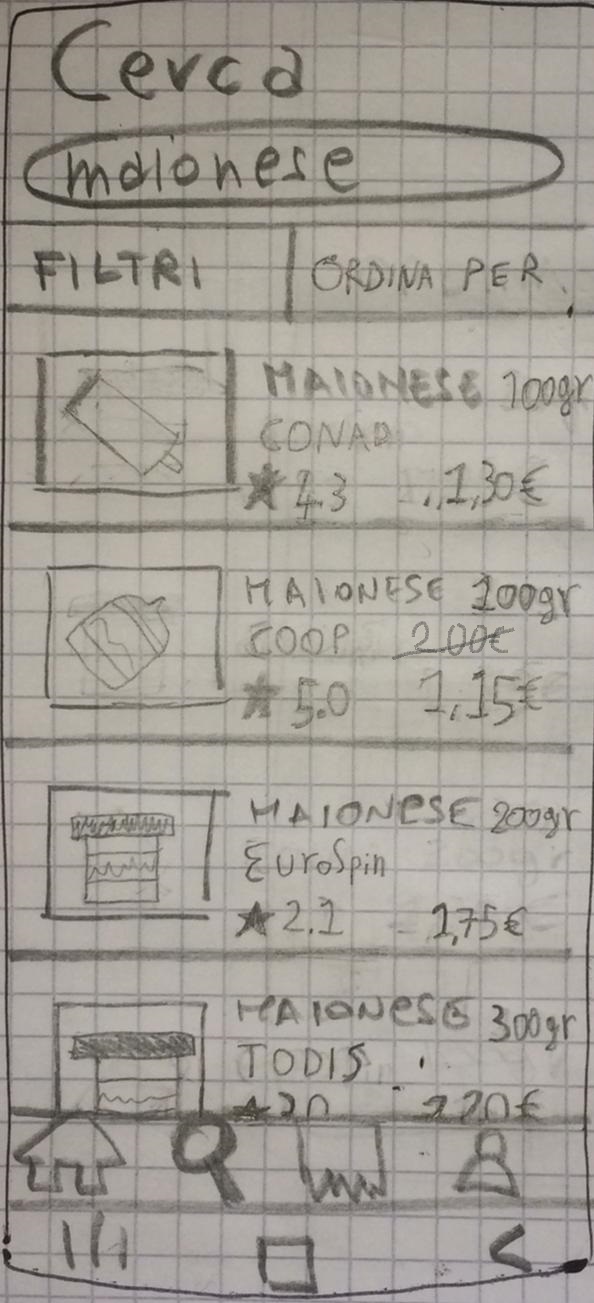 Cerca
maionese
FILTRI ORDINA PER
MAIONESE 100gr
CONAD
★ 4.3 1,30€
MAIONESE 100gr
COOP 2.00€
★ 5.0 1,15€
MAIONESE 200gr
EuroSpin
★ 2.1 1,75€
MAIONESE 300gr
TODIS